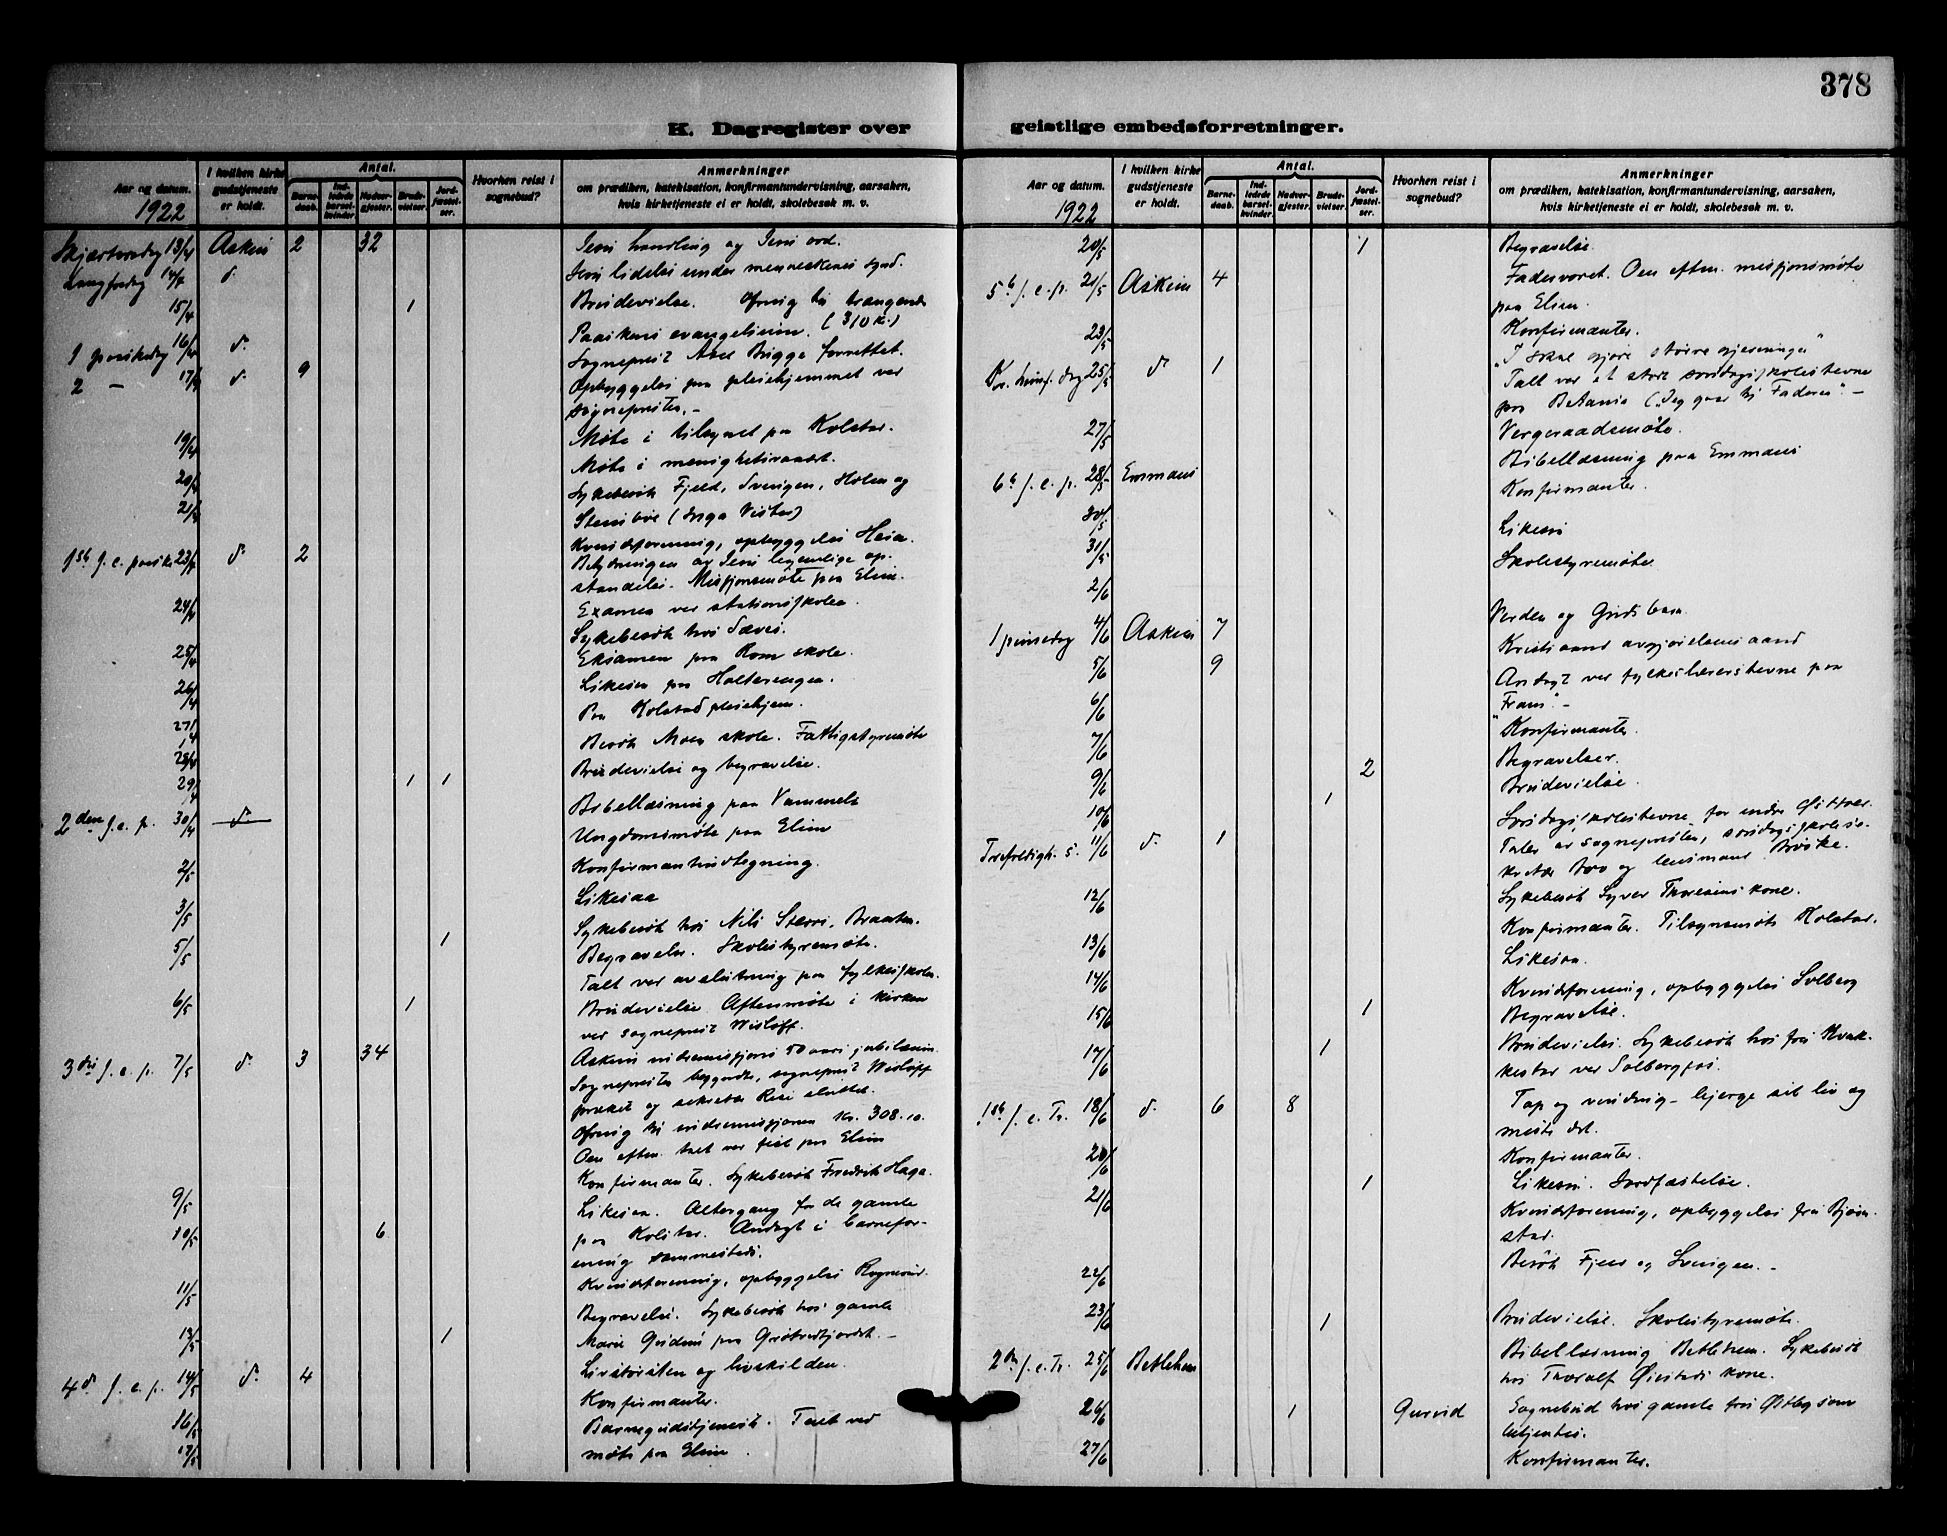 378
K. Dagregister over geistlige embedsforretninger.
Aar og datum. 1922
I hvilken kirke gudstjeneste er holdt.
Antal.
Barne-daab.
Ind-ledede barsel-kvinder.
Nadver-gjester.
Brude-vielser.
Jord-fæstel-ser.
Hvorhen reist i sognebud?
Anmerkninger
om prædiken, katekisation, konfirmantundervisning, aarsaken,
hvis kirketjeneste ei er holdt, skolebesøk m. v.
Skjærtorsdag 13/4 Askim 2 32 Jesu handling og Jesu ord.
Langfredag 14/4 d. Jesu lidelse under menneskenes synd.
15/4 1 Brudevielse. Ofring til trængende
(310 kr.)
1 paaskedag 16/4 d. Paaskens evangelium.
2 — 17/4 d. 9 Sogneprest Bugge forrettet.
Opbyggelse paa pleiehjemmet ved
sogneprest. –
19/4 Møte i tilsynet paa Kolstad.
20/4 Møte i menighetsraadet.
21/4 Sykebesøk Fjeld, Svenigen, Holen og
(Inga Vister)
Kvindeforening, opbyggelse Heia.
1ste s. e. paaske 23/4 d. 2 Betydningen av Jesu legemlige op-
standelse. Misjonsmøte paa Elim.
24/4 Examen ved stationsskolen.
Sykebesøk hos
25/4 Eksamen paa Rom skole.
26/4 Likesaa paa
27/4 Paa Kolstad pleiehjem.
28/4 Besøk Moen skole. Fattigstyremøte
29/4 1 1 Brudevielse og begravelse.
2den s. e. p. 30/4 d. Bibellæsning paa Vammeli
Ungdomsmøte paa Elim
2/5 Konfirmantindtegning.
3/5 Likesaa
Sykebesøk hos Nils Braaten.
5/5 1 Begravelse. Skolestyremøte.
Talt ved avslutning paa fylkesskolen.
6/5 1 Brudevielse Aftenmøte i kirken
ved sogneprest Wisløff.
3die s. e. p. 7/5 d. 3 34 Askim indremisjons 50 aars jubilæum.
Sognepresten begyndte, sogneprest Wisløff
præket og sekretær sluttet.
Ofring til indremisjonen kr. 308.10.
Om eftm. talt ved fest paa Elim
9/5 Konfirmanter. Sykebesøk Fredrik Haga.
10/5 6 Likesaa. Altergang for de gamle
paa Kolstad. Andagt i barnefor-
ening sammesteds.
11/5 Kvindeforening, opbyggelse
13/5 1 Begravelse. Sykebesøk hos gamle
Marie paa
4de s. e. p. 14/5 d. 4 Livstørsten og livskilden.
16/5 Konfirmanter.
17/5 Barnegudstjeneste. Talt ved
møte paa Elim.
Aar og datum. 1922
I hvilken kirke gudstjeneste er holdt.
Antal.
Barne-daab.
Ind-ledede barsel-kvinder.
Nadver-gjester.
Brude-vielser.
Jord-fæstel-ser.
Hvorhen reist i sognebud?
Anmerkninger
om prædiken, katekisation, konfirmantundervisning, aarsaken,
hvis kirketjeneste ei er holdt, skolebesøk m. v.
20/5 1 Begravelse.
5te s. e. p. 21/5 Askim 4 Fadervoret. Om eftm. misjonsmøte
paa Elim.
23/5 Konfirmanter.
Kr. himf. dag 25/5 d. 1 "I skal gjøre større gjerninger"
Talt ved et stort søndagsskolestevne
paa Betania ("Jeg gaar til Faderen". –
27/5 Vergeraadsmøte.
6te s. e. p. 28/5 Emmaus Bibellæsning paa Emmaus
30/5 Konfirmanter.
31/5 Likesaa
2/6 Skolestyremøte
1 pinsedag 4/6 Askim 7 Verden og Guds barn.
5/6 9 Kristi aand avgjørelsens aand
6/6 Andagt ved fylkeslærerstevne paa
"Fram". –
7/6 Konfirmanter.
9/6 2 Begravelser.
10/6 1 Brudevielse.
Trefoldigh. s. 11/6 d. 1 Søndagsskolestevne for indre Østfold.
Taler av sognepresten, søndagsskolese-
kretær og lensmand
12/6 Sykebesøk Syver Thoresens kone.
13/6 Konfirmanter. Tilsynsmøte Kolstad.
14/6 Likesaa.
15/6 1 Kvindeforening, opbyggelse Solberg
Begravelse.
17/6 1 Brudevielse. Sykebesøk hos fru
ved Solbergfoss.
1ste s. e. Tr. 18/6 d. 6 8 Tap og vinding – bjerge sit liv og
miste det.
20/6 Konfirmanter.
21/6 1 Likesaa. Jordfæstelse.
Kvindeforening, opbyggelse fru Bjørn-
stad.
22/6 Besøk Fjeld og Svenigen. –
23/6 1 Brudevielse. Skolestyremøte.
2den s. e. Tr. 25/6 Betlehem Bibellæsning Betlehem. Sykebesøk
hos Thoralf kone.
26/6 1 Sognebud hos gamle fru Østby som
27/6 Konfirmanter.